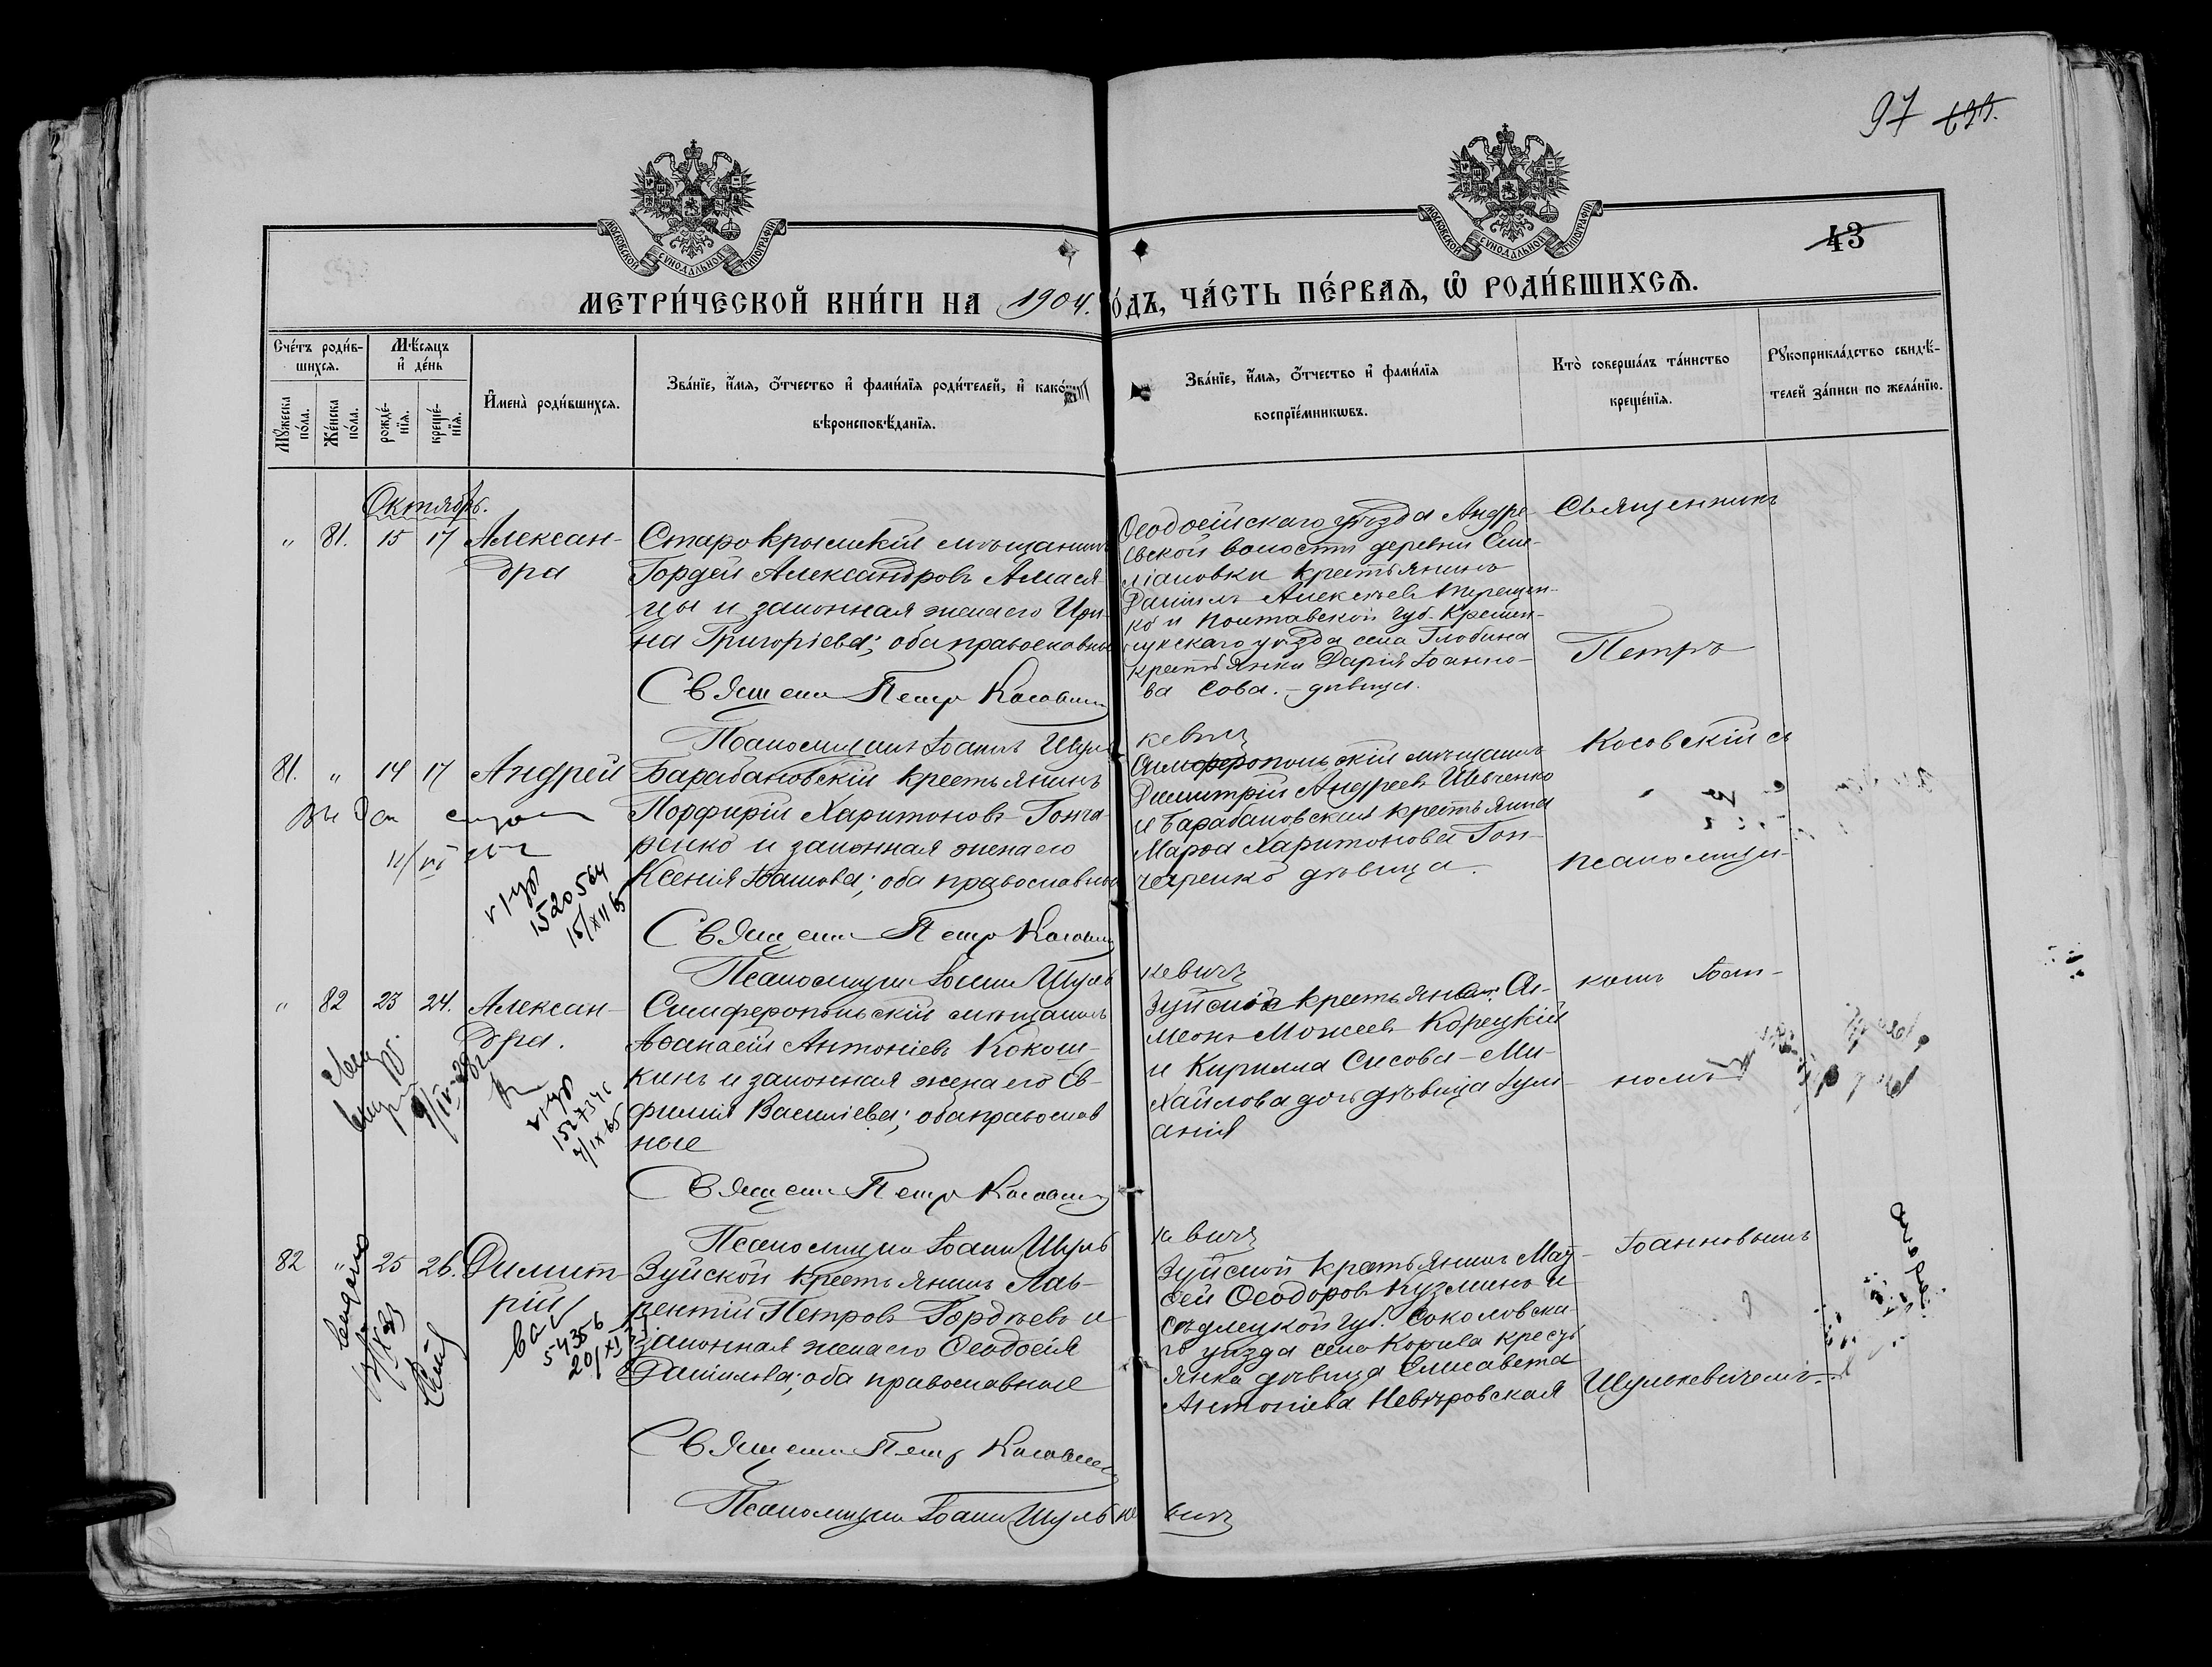 97
МОСКОВСКОЙ СѴНОДАЛЬНОЙ ТИПОГРАФІИ
МОСКОВСКОЙ СѴНОДАЛЬНОЙ ТИПОГРАФІИ
43
МЕТРИ́ЧЕСКОЙ КНИ́ГИ НА 1904. ОДЪ, ЧА́СТЬ ПЕ́РВАѦ, Ѡ҆ РОДИ́ВШИХСѦ.
Сче́тъ роди́вшихсѧ.
Мꙋ́жеска по́ла.
Же́нска по́ла.
Мѣ́сѧцъ и҆ де́нь
рожде́нїѧ.
креще́нїѧ.
И҆мена̀ роди́вшихсѧ.
Зва́нїе, и҆́мѧ, ѻ҆́тчество и҆ фами́лїѧ роди́телей, и҆ како́
вѣроисповѣ́данїѧ.
Зва́нїе, и҆́мѧ, ѻ҆́тчество и҆ фами́лїѧ
воспрїе́мникѡвъ.
Кто̀ соверша́лъ та́инство
креще́нїѧ.
Рꙋкоприкла́дство свидѣ́телей за́писи по жела́нїю.
Октябрь.
" 81. 15 17
Алексан-
дра
Старокрымскій мѣщанинъ
Гордей Александровъ Амася-
цы и законная жена его Ири-
на Григоріева; оба православные
Священ Петр Косовски
Псаломщикъ Іоаннъ Шуль
кевичъ
Ѳеодосійскаго уѣзда Андре-
евской волости деревни Еме-
ліановки крестьянинъ
Даніилъ Алексѣевъ
ко и Полтавской губ. Кремен-
чугскаго уѣзда села Глобина
крестьянка Дарія Іоанно-
ва Сова. – дѣвица.
81. " 14 17
Андрей
Барабановскій крестьянинъ
Порфирій Харитоновъ Гонча-
ренко и законная жена его
Ксенія Іоаннова; оба православные
Священ Петр Косовски
Псаломщикъ Іоаннъ Шуль
кевичъ
Симферопольскій мѣщанинъ
Димитрій Андреевъ Шевченко
и Барабановская крестьянка
Марѳа Харитонова Гон-
чаренко дѣвица.
1520564
15/XII 65
" 82 23 24.
Алексан-
дра.
Симферопольскій мѣщанинъ
Аѳанасій Антоніевъ Кокош-
кинъ и законная жена его Ев-
фимія Василіева; оба православ
ные
Священ Петр Косовски
Псаломщикъ Іоаннъ Шуль
кевичъ
меонъ Моисеевъ Корецкій
и Кирилла Сисова – Ми-
хайлова дочь дѣвица Іулі-
анія
82 " 25 26.
Димит-
рій
54356
Зуйской крестьянинъ Лав-
рентій Петровъ Гордѣевъ и
законная жена его Ѳеодосія
Даніилова; оба православные
Священ Петр Косовски
Псаломщикъ Іоаннъ Шульке
вичъ
Зуйской крестьянинъ Мат-
ѳей Ѳеодоровъ Кузминъ и
Сѣдлецкой губ. Соколовска-
го уѣзда села Корчева кресть
янка дѣвица Елисавета
Антоніева Невѣровская
Священникъ
Петръ
Косовскій съ
псаломщи-
комъ Іоан-
номъ
Іоанновымъ
Шулькевичемъ.